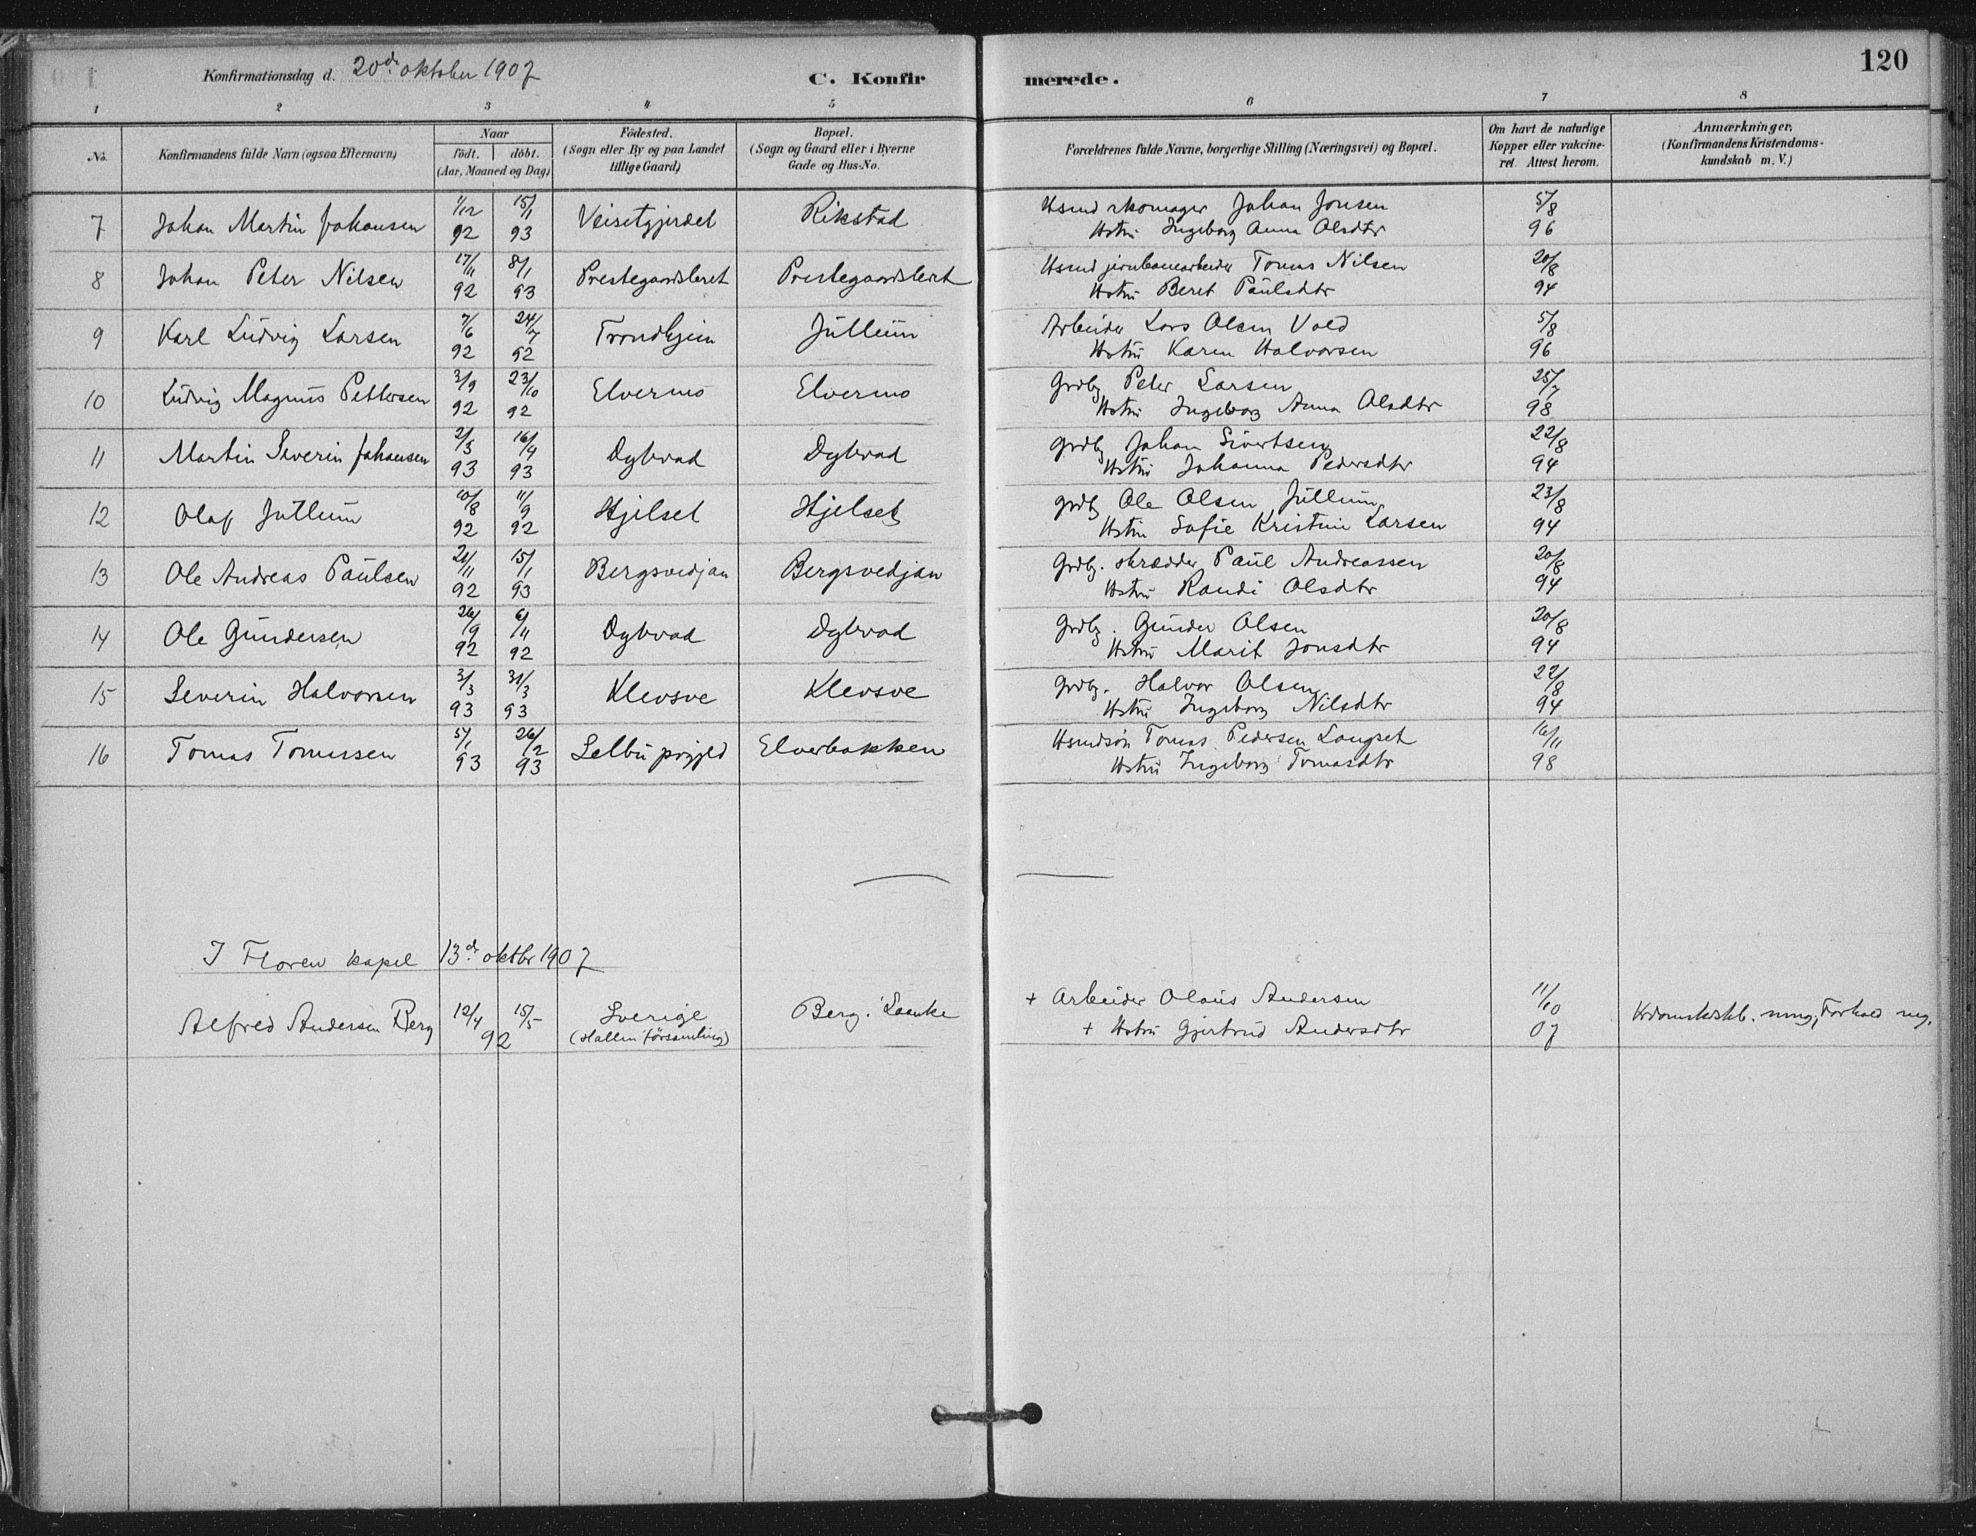 Konfirmationsdag d. 20de oktober 1907 C. Konfirmerede. 120
1 2 3 4 5 6 7 8
No. Konfirmandens fulde Navn (ogsaa Efternavn) Naar födt. döbt. (Aar, Maaned og Dag) Födested. (Sogn eller By og paa Landet tillige Gaard) Bopæl. (Sogn og Gaard eller i Byerne Gade og Hus-No. Forældrenes fulde Navne, borgerlige Stilling (Næringsvei) og Bopæl. Om havt de naturlige Kopper eller vakcineret. Attest herom. Anmærkninger. (Konfirmandens Kristendomskundskab m. V.)
7 Johan Martin Johansen 1/12 92 15/1 93 Veisetgjerdet Rikstad Hsmd skomager Johan Jonsen 5/8
Hstru Ingeborg Anna Olsdtr 96
8 Johan Peter Nilsen 17/11 92 8/1 93 Prestegaardsleret Prestegaardsleret Hsmd jernbanearbeider Tomas Nilsen 20/8
Hstru Beret Paulsdtr 94
9 Karl Ludvig Larsen 7/6 92 24/7 92 Trondhjem Jullum Arbeider Lars Olsen Vold 5/8
Hstru Karen Halvorsen 96
10 Ludvig Magnus Pettersen 3/9 92 23/10 92 Elvermo Elvermo Grdbg Peter Larsen 25/7
Hstru Ingeborg Anna Olsdtr 98
11 Martin Severin Johansen 2/3 93 16/4 93 Dybvad Dybvad Grdbg Johan Sivertsen 22/8
Hstru Johanna Pedersdtr 94
12 Olaf Jullum 10/8 92 11/9 92 Hjelset Hjelset grdbg Ole Olsen Jullum 23/8
Hstru Sofie Kristine Larsen 94
13 Ole Andreas Paulsen 21/11 92 15/1 93 Bergsvedjan Bergsvedjan Grdbg. skrædder Paul Andreassen 20/8
Hstru Randi Olsdtr 94
14 Ole Gundersen 26/9 92 6/11 92 Dybvad Dybvad Grdbg. Gunder Olsen 20/8
Hstru Marit Jonsdtr 94
15 Severin Halvorsen 3/3 93 31/3 93 Klevsve Klevsve Grdbg. Halvor Olsen 22/8
Hstru Ingeborg Nilsdtr 94
16 Tomas Tomassen 5/1 93 26/2 93 Selbu prgjld Elverbakken Hsmdsön Tomas Pedersen Langset 16/11
Hstru Ingeborg Tomasdtr 98
I Floren kapel 13de oktbr 1907
Alfred Andersen Berg 12/4 15/5 92 Sverige (Hallen församling) Berg. Laanke + Arbeider Olaus Andersen 11/10
+ Hstru Gjertrud Andersdtr 07 Krdomskdskb. mmg, Forhold mg.